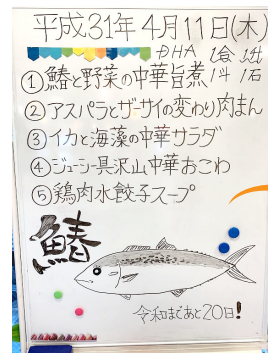 平成31年4月11日(木)
DHA
①鰆と野菜の中華旨煮
②アスパラとザーサイの変わり肉まん
③イカと海藻の中華サラダ
④ジューシー具沢山中華おこわ
⑤鶏肉水餃子スープ
鰆
令和まであと20日!